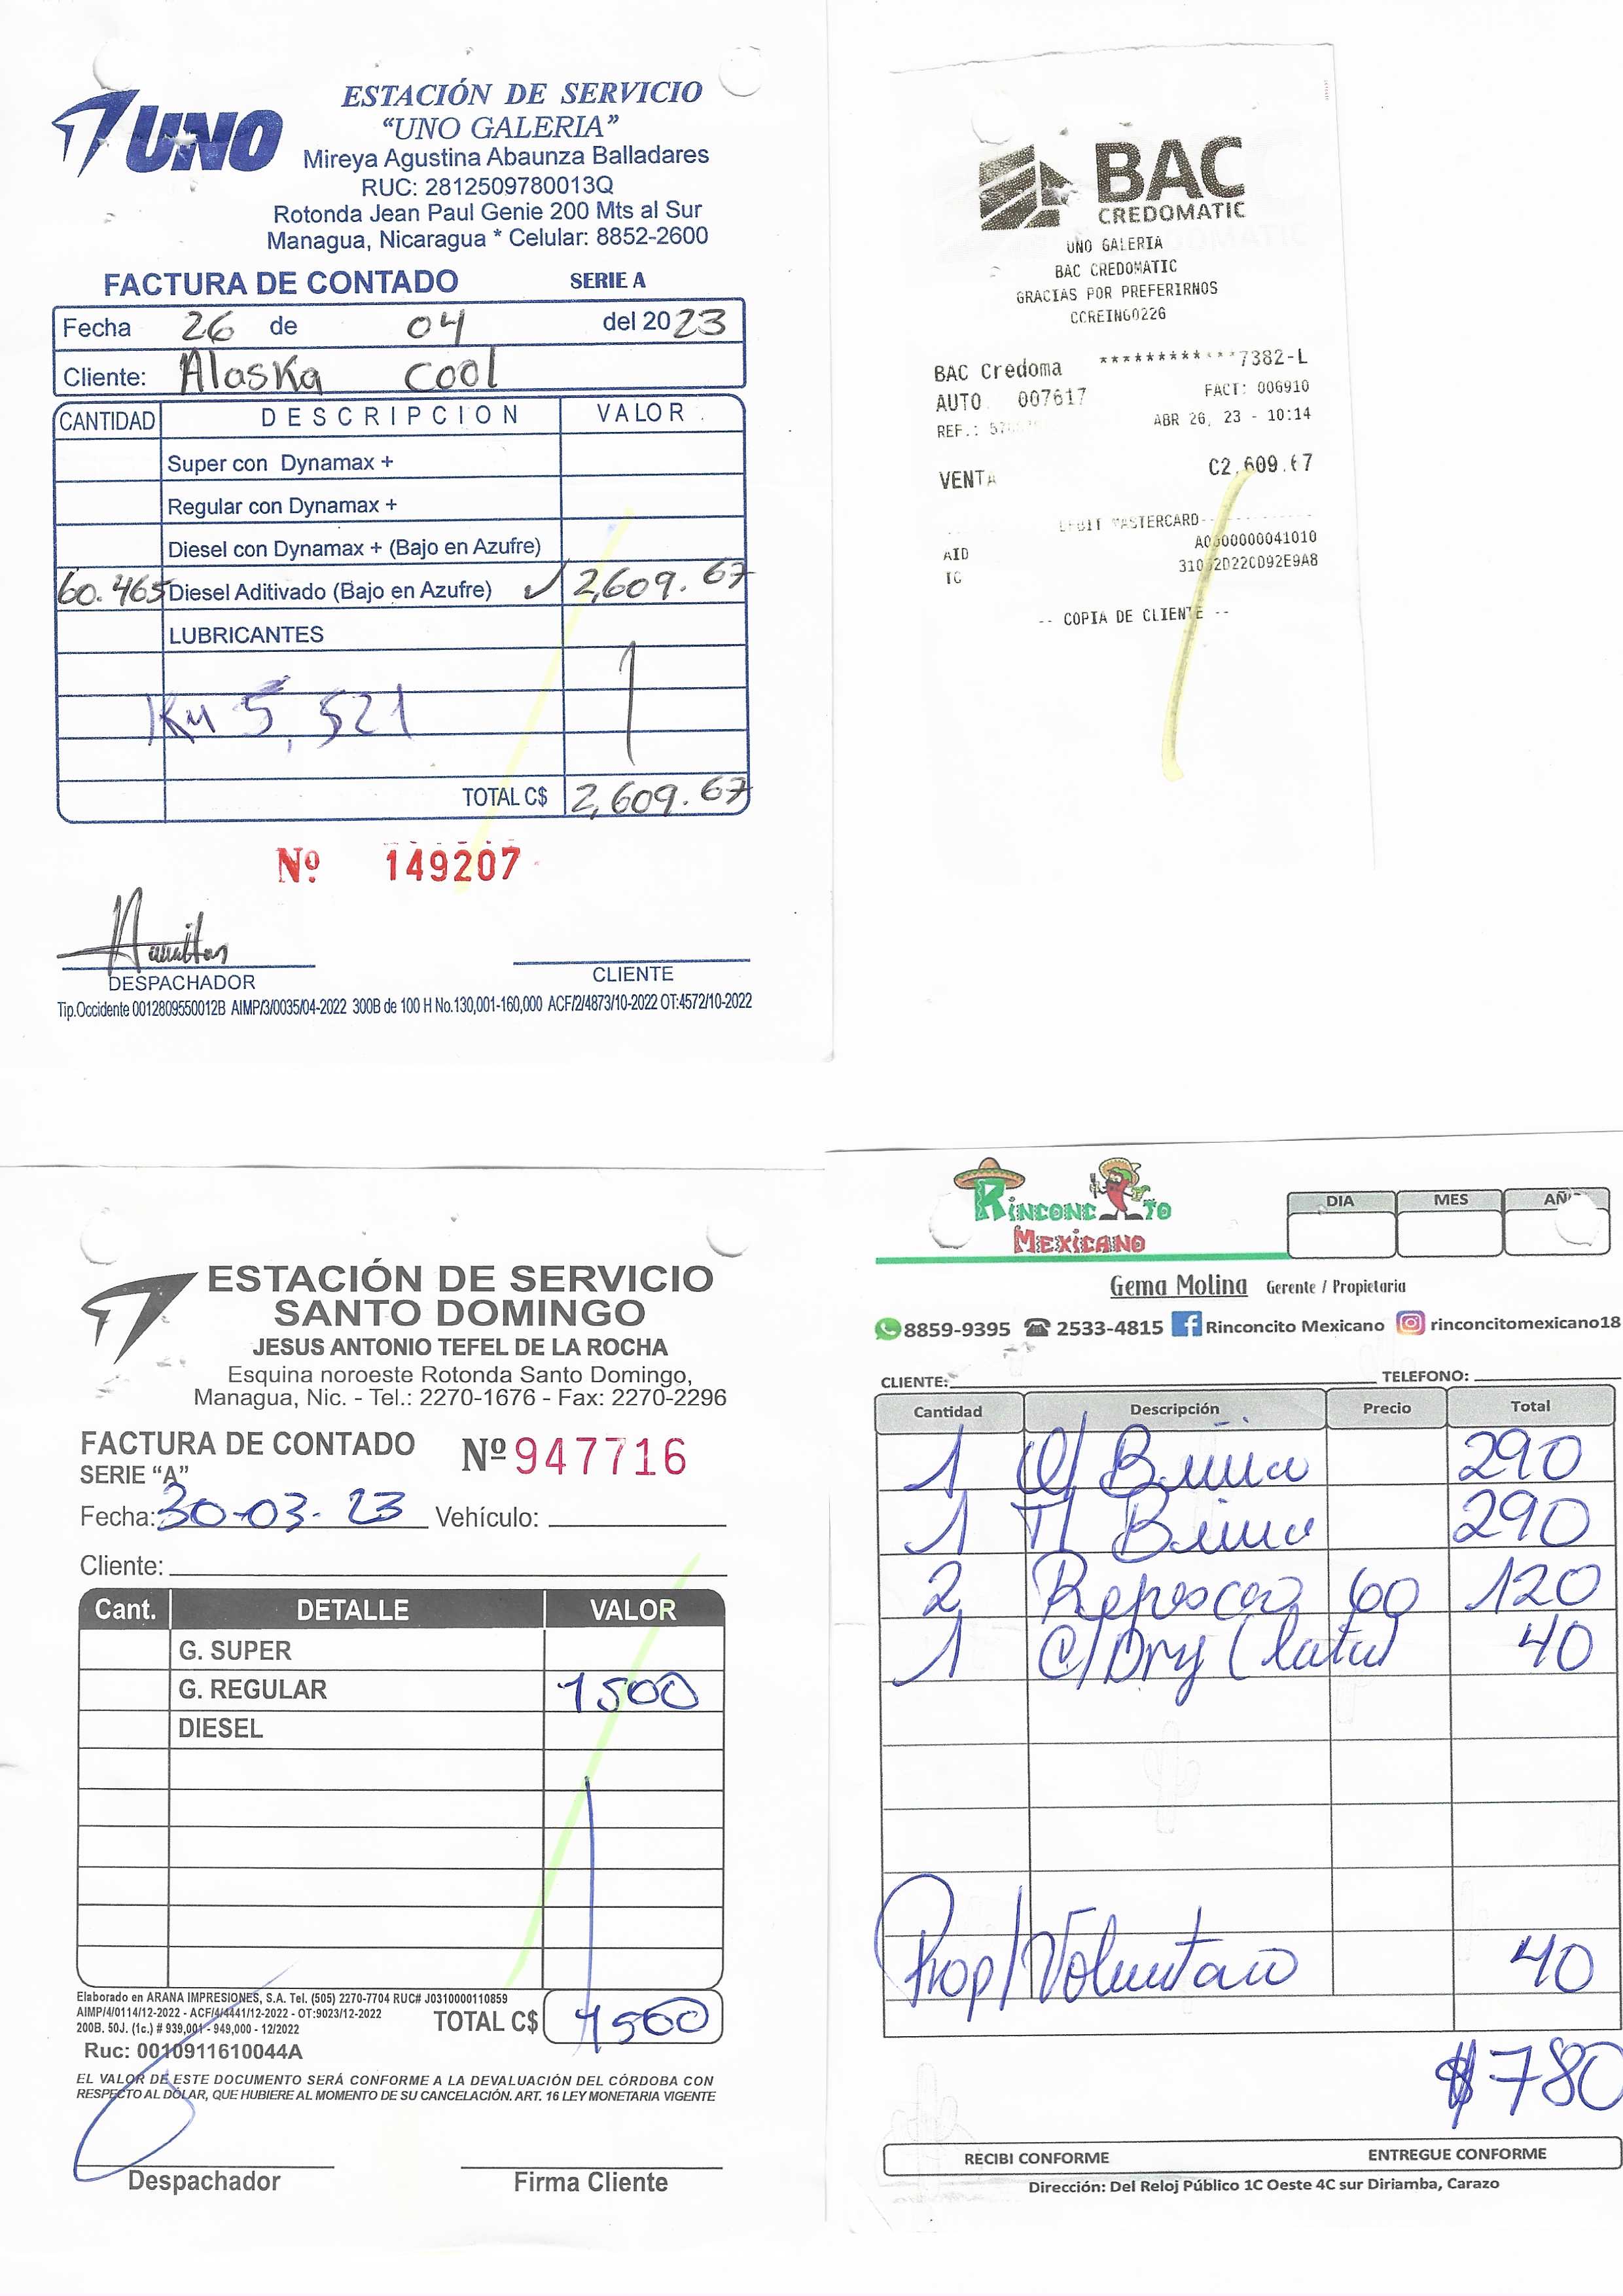 UNO
ESTACIÓN DE SERVICIO
“UNO GALERIA”
Mireya Agustina Abaunza Balladares
RUC: 2812509780013Q
Rotonda Jean Paul Genie 200 Mts al Sur
Managua, Nicaragua * Celular: 8852-2600
FACTURA DE CONTADO SERIE A
Fecha 26 de 04 del 2023
Cliente: Alaska cool
CANTIDAD DESCRIPCION VALOR
Super con Dynamax +
Regular con Dynamax +
Diesel con Dynamax + (Bajo en Azufre)
60.465 Diesel Aditivado (Bajo en Azufre) ✓ 2,609.67
LUBRICANTES
Km 5,521
TOTAL C$ 2,609.67
Nº 149207
Hamilton
DESPACHADOR CLIENTE
Tip.Occidente 0012809550012B AIMP/3/0035/04-2022 300B de 100 H No.130,001-160,000 ACF/2/4873/10-2022 OT:4572/10-2022
BAC
CREDOMATIC
UNO GALERIA
BAC CREDOMATIC
GRACIAS POR PREFERIRNOS
CCREING0226
BAC Credoma ************7382-L
AUTO 007617 FACT: 006910
REF.: ABR 26, 23 - 10:14
VENTA C2,609.67
MASTERCARD
AID A0000000041010
TC
-- COPIA DE CLIENTE --
ESTACIÓN DE SERVICIO
SANTO DOMINGO
JESUS ANTONIO TEFEL DE LA ROCHA
Esquina noroeste Rotonda Santo Domingo,
Managua, Nic. - Tel.: 2270-1676 - Fax: 2270-2296
FACTURA DE CONTADO Nº 947716
SERIE “A”
Fecha: 30-03-23 Vehículo:
Cliente:
Cant. DETALLE VALOR
G. SUPER
G. REGULAR 1500
DIESEL
Elaborado en ARANA IMPRESIONES, S.A. Tel. (505) 2270-7704 RUC# J0310000110859
AIMP/4/0114/12-2022 - ACF/4/4441/12-2022 - OT:9023/12-2022
200B. 50J. (1c.) # 939,001 - 949,000 - 12/2022
TOTAL C$ 1500
Ruc: 0010911610044A
EL VALOR DE ESTE DOCUMENTO SERÁ CONFORME A LA DEVALUACIÓN DEL CÓRDOBA CON
RESPECTO AL DÓLAR, QUE HUBIERE AL MOMENTO DE SU CANCELACIÓN. ART. 16 LEY MONETARIA VIGENTE
Despachador Firma Cliente
RINCONCITO
MEXICANO
DIA MES AÑO
Gema Molina Gerente / Propietaria
8859-9395 2533-4815 Rinconcito Mexicano rinconcitomexicano18
CLIENTE: TELEFONO:
Cantidad Descripción Precio Total
1 290
1 290
2 60 120
1 40
Prop/Voluntario 40
$780
RECIBI CONFORME ENTREGUE CONFORME
Dirección: Del Reloj Público 1C Oeste 4C sur Diriamba, Carazo